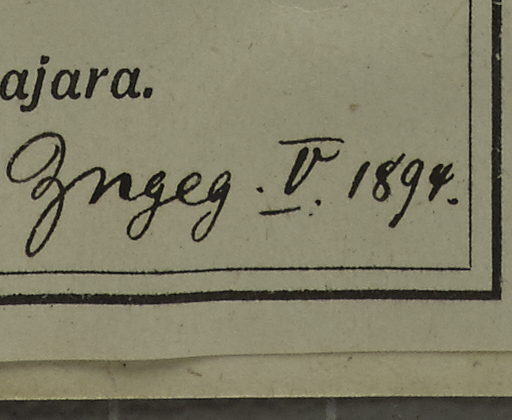 ajara.
Zngeg. V. 1894.